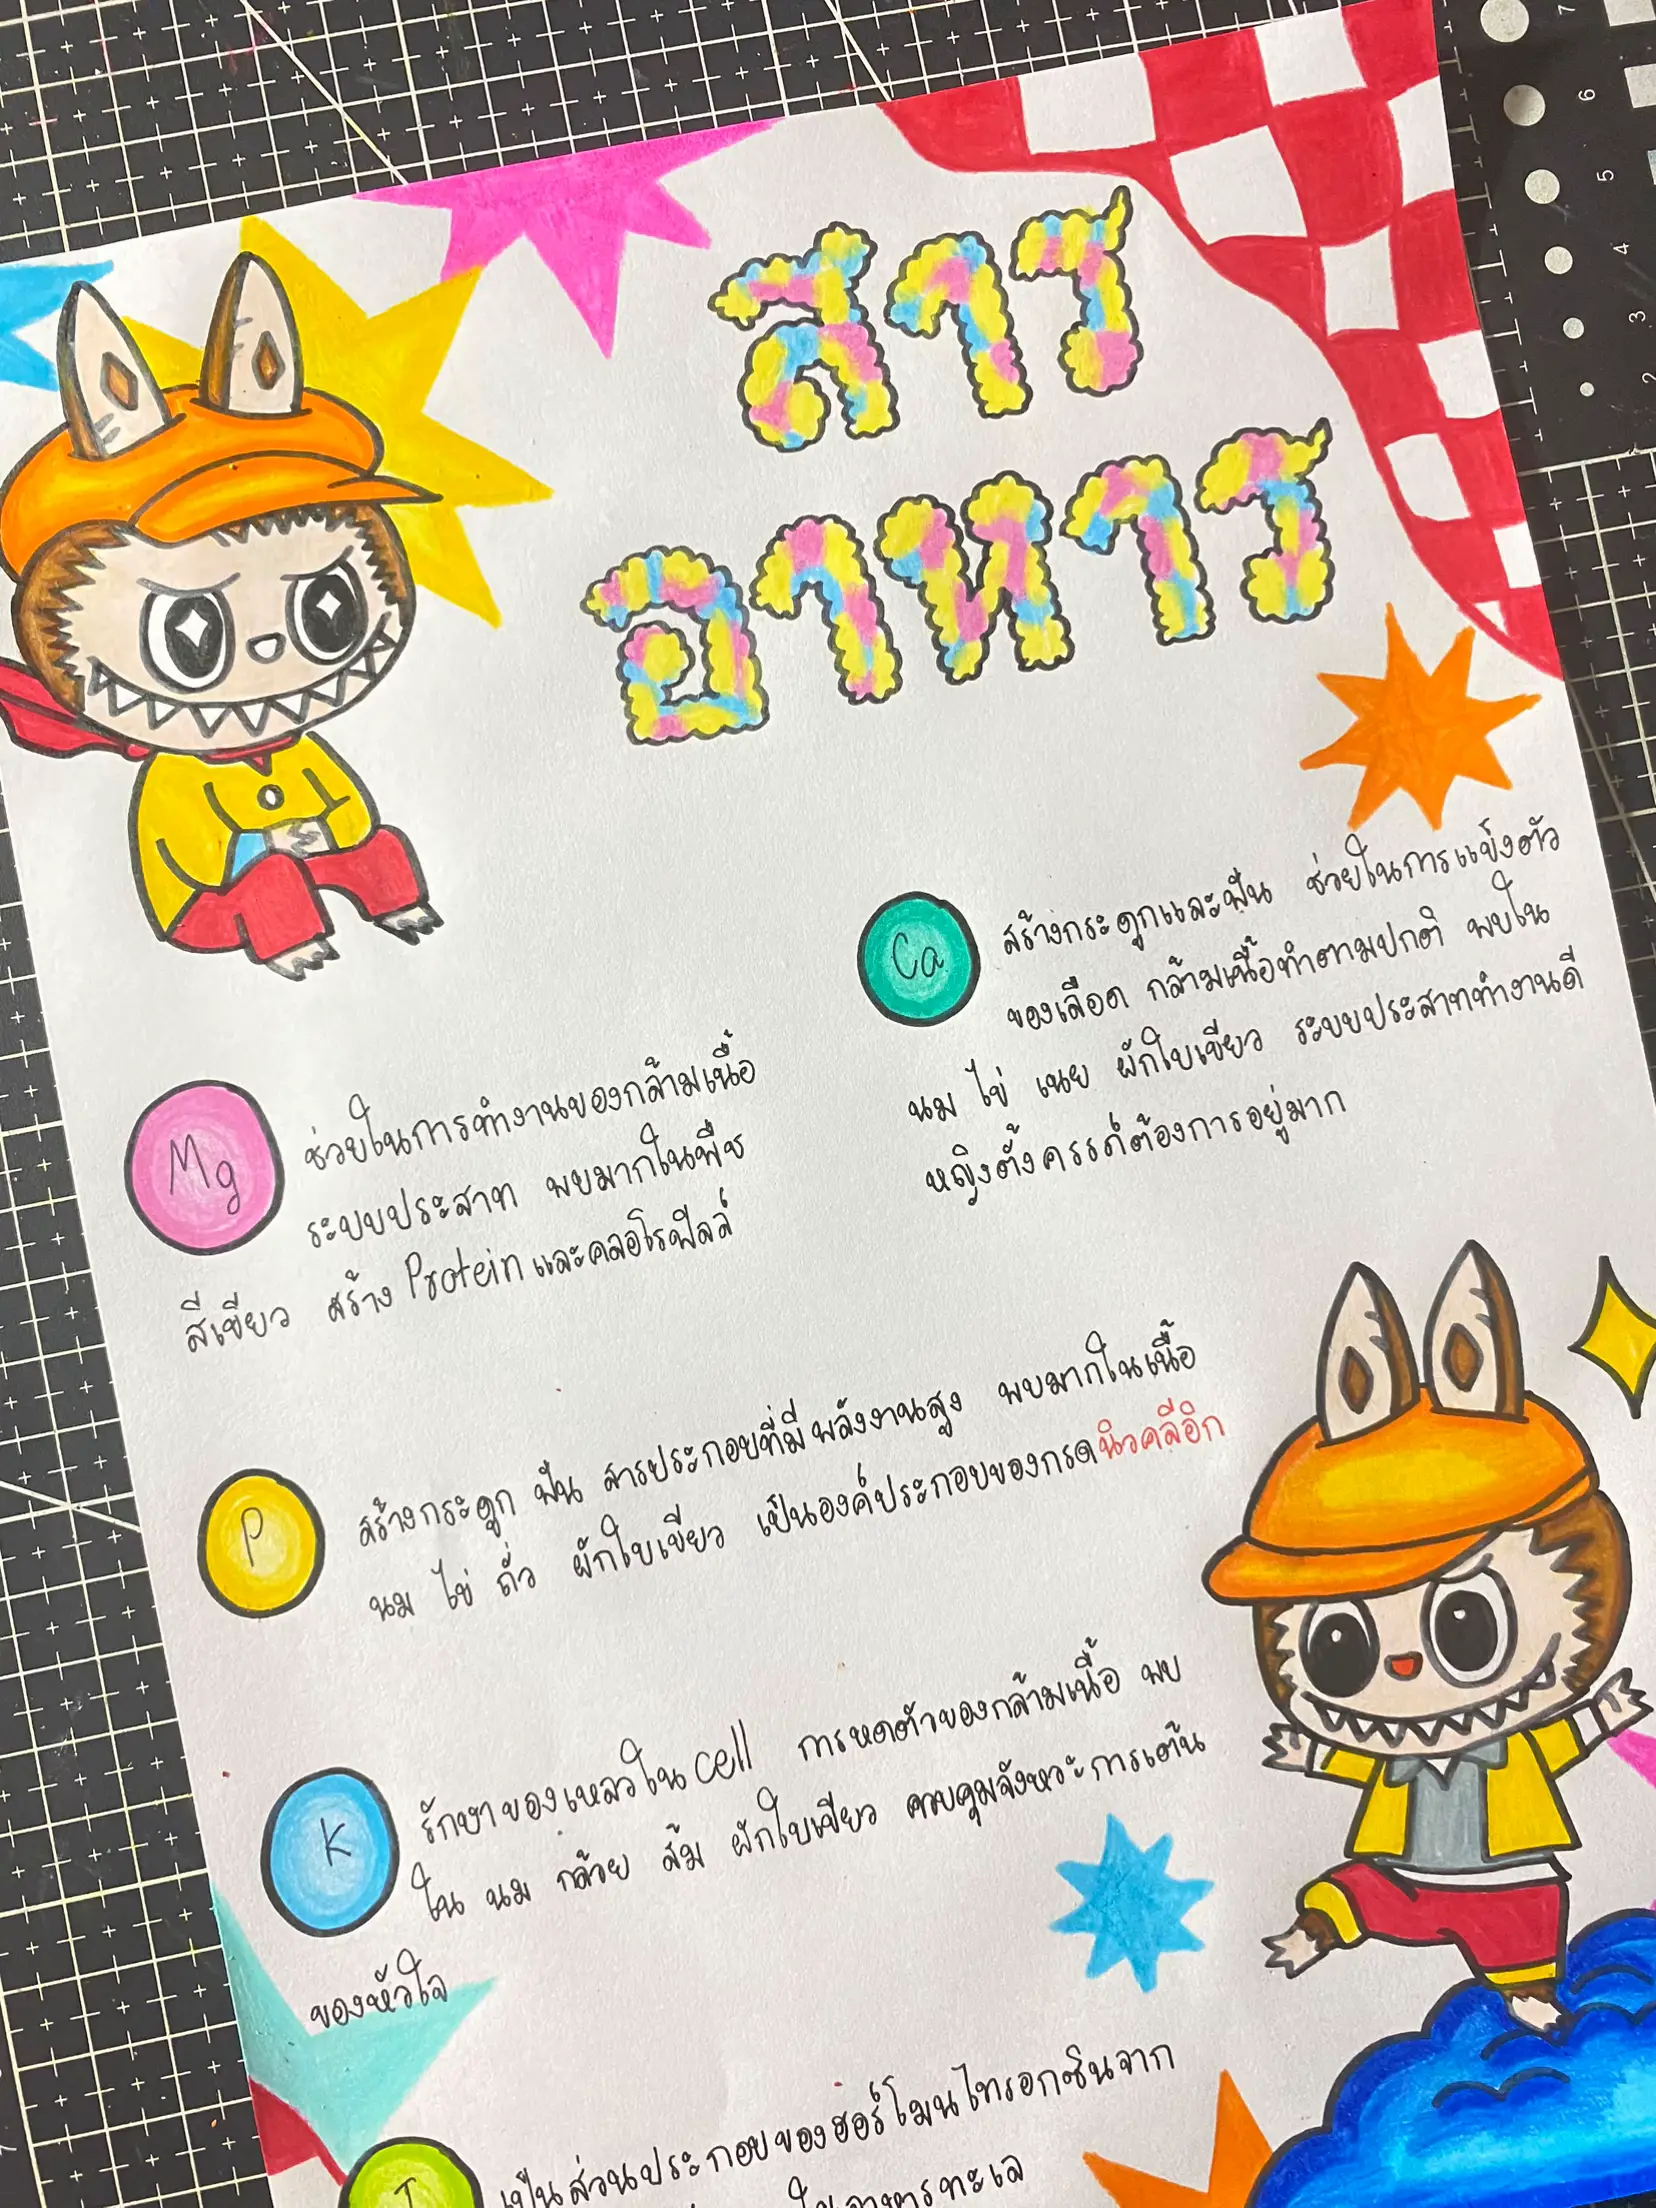 สาร
อาหาร
Ca
สร้างกระดูกและฟัน ช่วยในการแข็งตัว
ของเลือด กล้ามเนื้อทำตามปกติ พบใน
นม ไข่ เนย ผักใบเขียว ระบบประสาททำงานดี
หญิงตั้งครรภ์ต้องการอยู่มาก
Mg
ช่วยในการทำงานของกล้ามเนื้อ
ระบบประสาท พบมากในพืช
สีเขียว สร้าง Protein และคลอโรฟีลล์
P
สร้างกระดูก ฟัน สารประกอบที่มีพลังงานสูง พบมากในเนื้อ
นม ไข่ ถั่ว ผักใบเขียว เป็นองค์ประกอบของกรดนิวคลีอิก
K
รักษาของเหลวใน cell การหดตัวของกล้ามเนื้อ พบ
ใน นม กล้วย ส้ม ผักใบเขียว ควบคุมจังหวะการเต้น
ของหัวใจ
I
เป็นส่วนประกอบของฮอร์โมนไทรอกซินจาก
ในอาหารทะเล
7
6
5
4
3
2